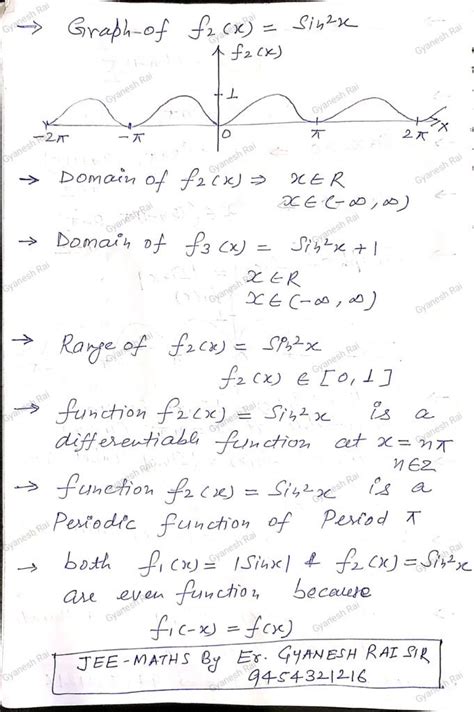 → Graph-of f₂(x) = Sin²x
f₂(x)
1
-2π -π 0 π 2π x
→ Domain of f₂(x) ⇒ x∈R
x∈(-∞,∞)
→ Domain of f₃(x) = Sin²x+1
x∈R
x∈(-∞,∞)
→ Range of f₂(x) = Sin²x
f₂(x) ∈ [0,1]
→ function f₂(x) = Sin²x is a
differentiable function at x=nπ
n∈Z
→ function f₂(x) = Sin²x is a
Periodic function of Period π
→ both f₁(x) = |Sinx| & f₂(x) = Sin²x
are even function because
f₁(-x) = f(x)
JEE-MATHS By Er. GYANESH RAI SIR
9454321216
Gyanesh Rai